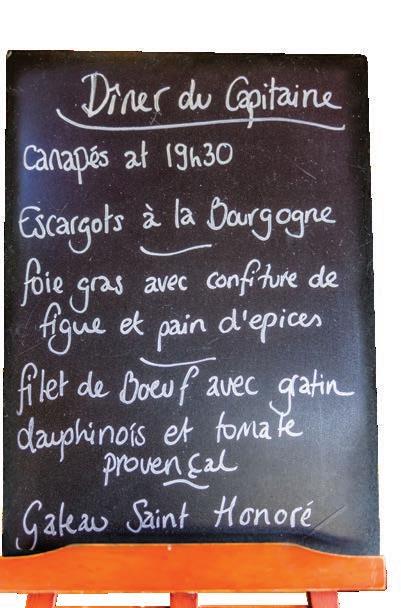 Dîner du Capitaine
Canapés at 19h30
Escargots à la Bourgogne
foie gras avec confiture de
figue et pain d'epices
filet de Boeuf avec gratin
dauphinois et tomate
provençal
Gateau Saint Honoré